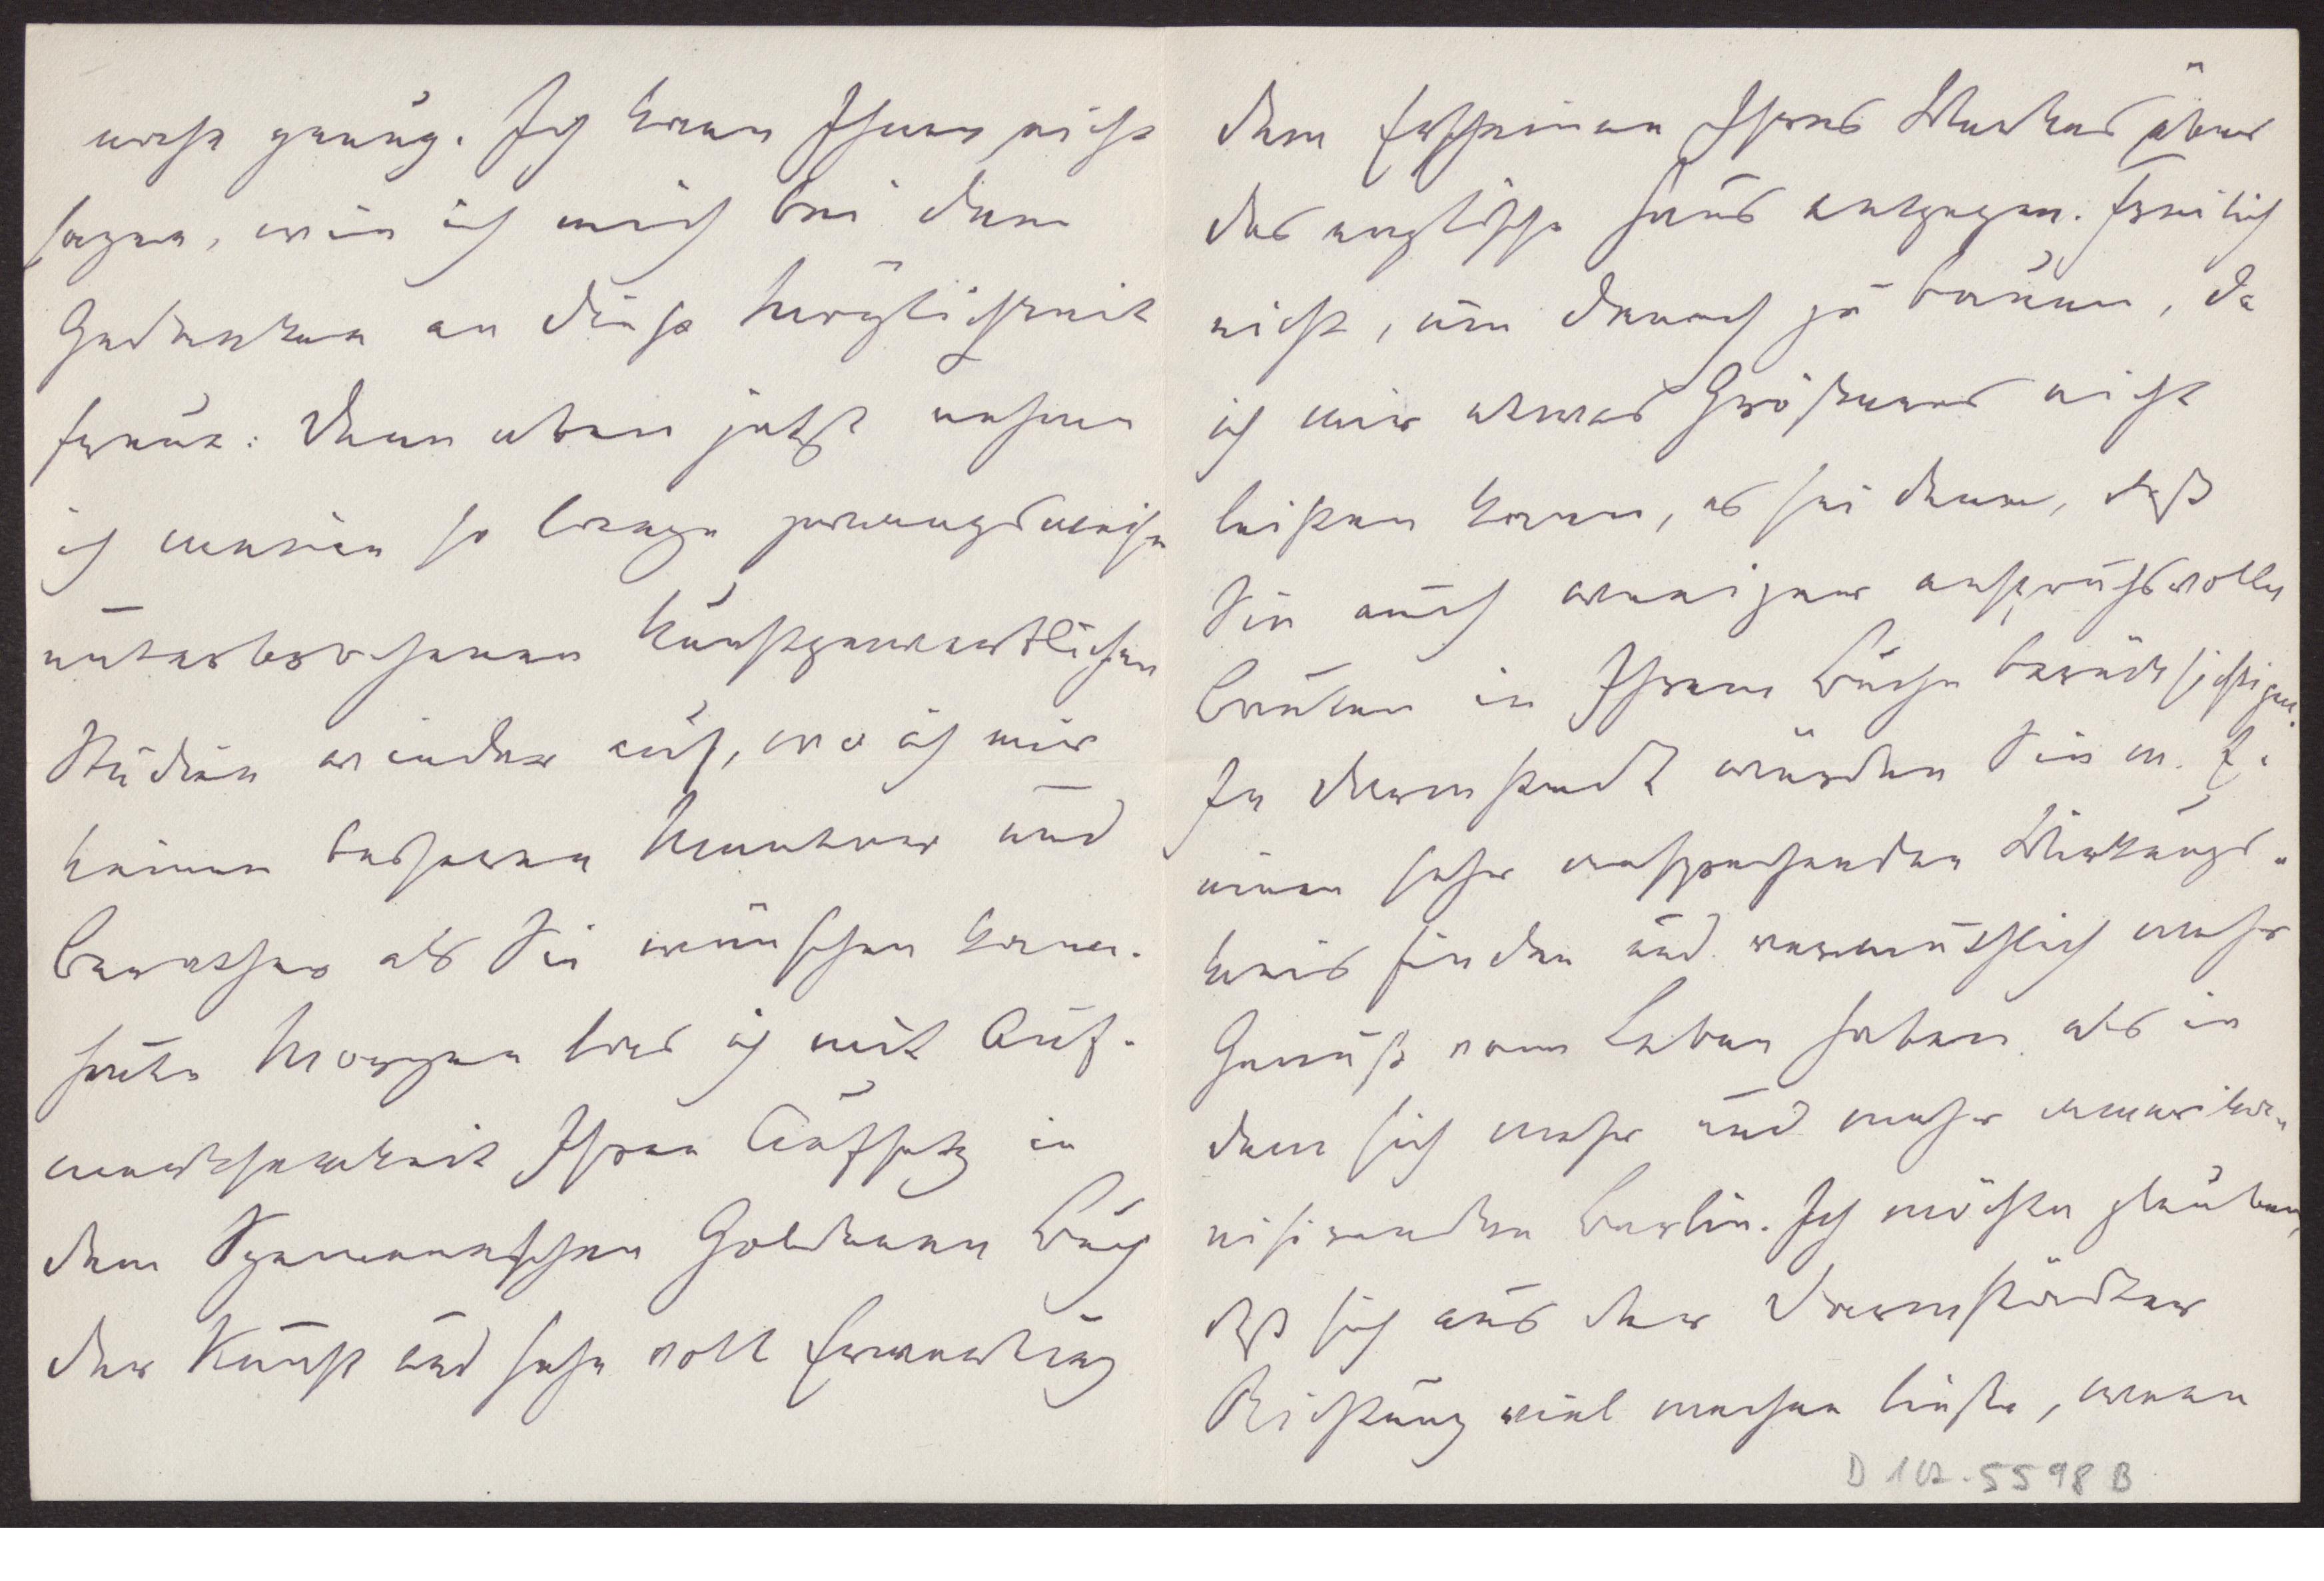 nicht genug. Ich kann Ihnen nicht
sagen, wie ich mich bei dem
Gedanken an diese Möglichkeit
freue: denn eben jetzt nehme
ich meine so lange zwangsweise
unterbrochenen kunstgewerblichen
Studien wieder auf, wo ich mir
keinen besseren Mentor und
Berather als Sie wünschen kann.
Heute Morgen las ich mit Auf-
merksamkeit Ihren Aufsatz in
dem Spemannschen Goldenen Buch
der Kunst und sehe voll Erwartung
dem Erscheinen Ihres Werkes über
das englische Haus entgegen. Freilich
nicht, um danach zu bauen, da
ich mir etwas Größeres nicht
leisten kann, es sei denn, daß
Sie auch weniger anspruchsvolle
Bauten in Ihrem Buche berücksichtigen.
In Darmstadt würden Sie m. E.
einen sehr entsprechenden Wirkungs-
kreis finden und vermuthlich mehr
Genuß vom Leben haben als in
dem sich mehr und mehr amerika-
nisirenden Berlin. Ich möchte glauben,
daß sich aus der Darmstädter
Richtung viel machen ließe, wenn
D 102-5598 B